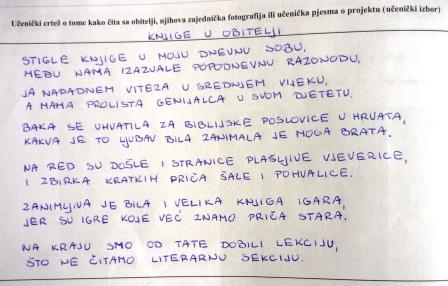 Učenički crtež o tome kako čita sa obitelji, njihova zajednička fotografija ili učenička pjesma o projektu (učenički izbor)
KNJIGE U OBITELJI
STIGLE KNJIGE U MOJU DNEVNU SOBU,
MEĐU NAMA IZAZVALE POPODNEVNU RAZONODU.
JA NAPADNEM VITEZA U SREDNJEM VIJEKU,
A MAMA PROLISTA GENIJALCA U SVOM DJETETU.
BAKA SE UHVATILA ZA BIBLIJSKE POSLOVICE U HRVATA,
KAKVA JE TO LJUBAV BILA ZANIMALA JE MOGA BRATA.
NA RED SU DOŠLE I STRANICE PLAŠLJIVE VJEVERICE,
I ZBIRKA KRATKIH PRIČA ŠALE I POHVALICE.
ZANIMLJIVA JE BILA I VELIKA KNJIGA IGARA,
JER SU IGRE KOJE VEĆ ZNAMO PRIČA STARA.
NA KRAJU SMO OD TATE DOBILI LEKCIJU,
ŠTO NE ČITAMO LITERARNU SEKCIJU.